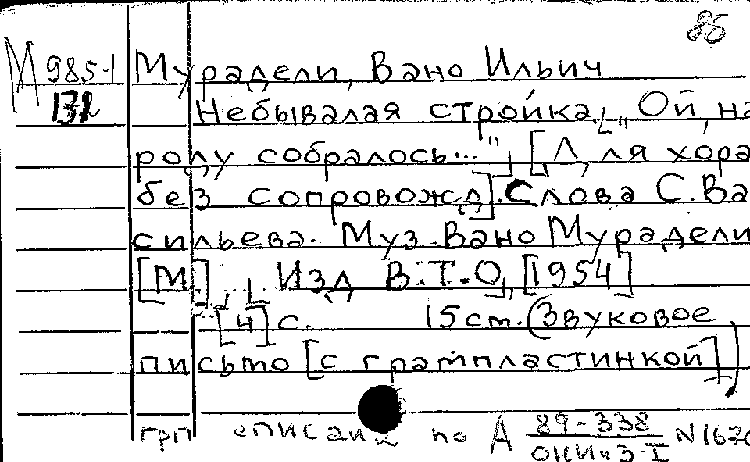 86
М 985-1 Мурадели, Вано Ильич
132 Небывалая стройка. „Ой, на
роду собралось..." [Для хора
без сопровожд]. Слова С. Ва
сильева. Муз. Вано Мурадели
[М.], Изд. В.Т.О, [1954]
[4] с. 15 см. (Звуковое
письмо [с грампластинкой])
грп описание по А 89-338 N 1670